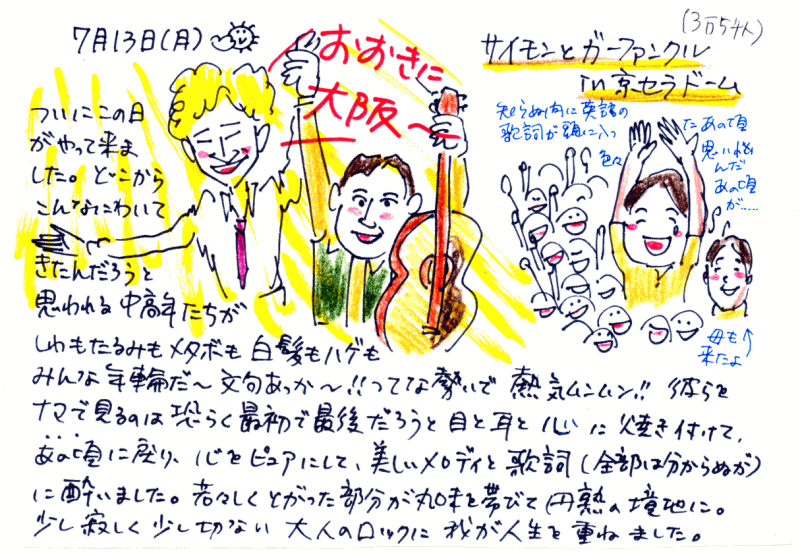 7月13日(月)
おおきに
大阪〜
(3万5千人)
サイモンとガーファンクル
in 京セラドーム
知らぬ間に英語の
歌詞が頭に入っ
た あの頃
色々
思い悩
んだ
あの頃
が……
母も
来たよ
ついにこの日
がやって来ま
した。どこから
こんなにわいて
きたんだろうと
思われる中高年たちが
しわもたるみもメタボも白髪もハゲも
みんな年輪だ〜文句あっか〜!!ってな勢いで 熱気ムンムン!! 彼らを
ナマで見るのは恐らく最初で最後だろうと目と耳と心に焼き付けて、
あの頃に戻り、心をピュアにして、美しいメロディと歌詞(全部は分からぬが)
に酔いました。若々しくとがった部分が丸味を帯びて円熟の境地に。
少し寂しく少し切ない大人のロックに我が人生を重ねました。